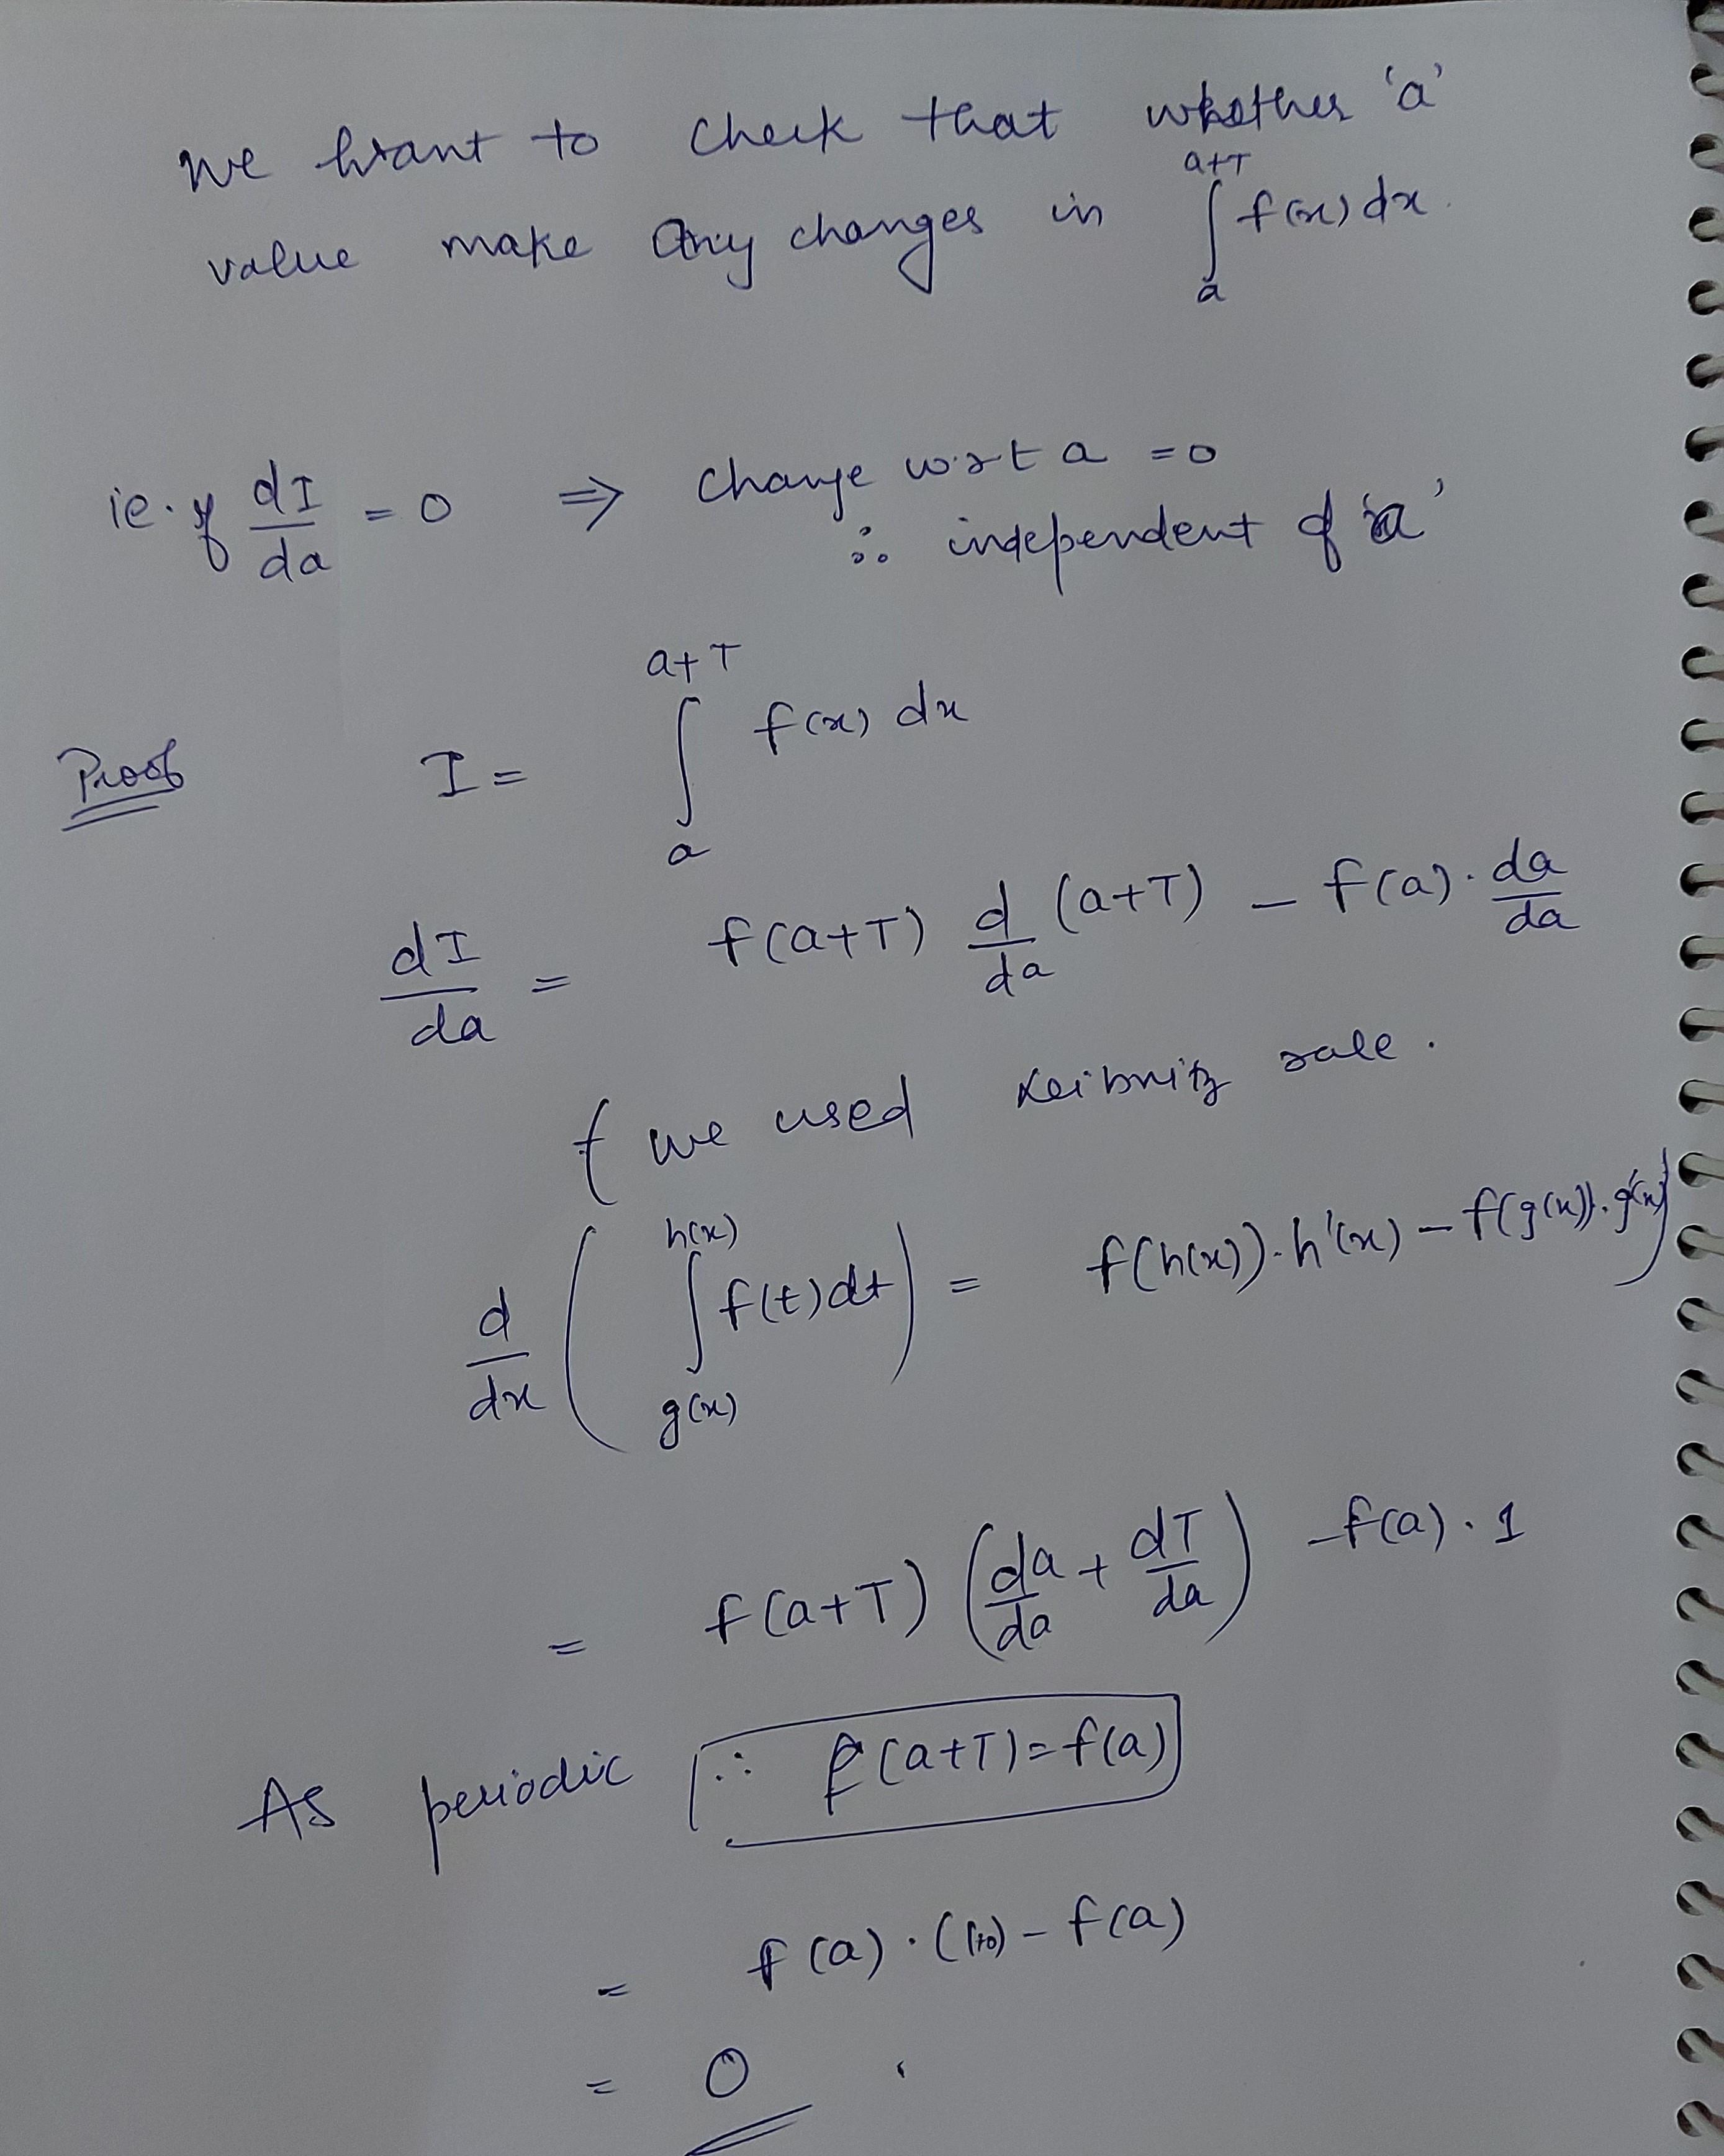 we want to check that whether 'a'
value make any changes in ∫_a^{a+T} f(x) dx.
ie. if dI/da = 0 ⇒ change w.r.t a = 0
∴ independent of 'a'
Proof I = ∫_a^{a+T} f(x) dx
dI/da = f(a+T) d/da (a+T) - f(a) . da/da
{ we used Leibnitz rule.
d/dx ( ∫_{g(x)}^{h(x)} f(t) dt ) = f(h(x)) . h'(x) - f(g(x)) . g'(x) }
= f(a+T) ( da/da + dT/da ) - f(a) . 1
As periodic ∴ f(a+T) = f(a)
= f(a) . (1+0) - f(a)
= 0